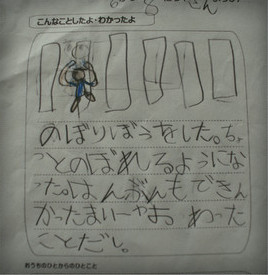 さん
こんなことしたよ・わかったよ
のぼりぼうをした。ちょ
っとのぼれるようにな
った。はんぶんもできん
かったまいーやお わった
ことだし。
おうちのひとからのひとこと